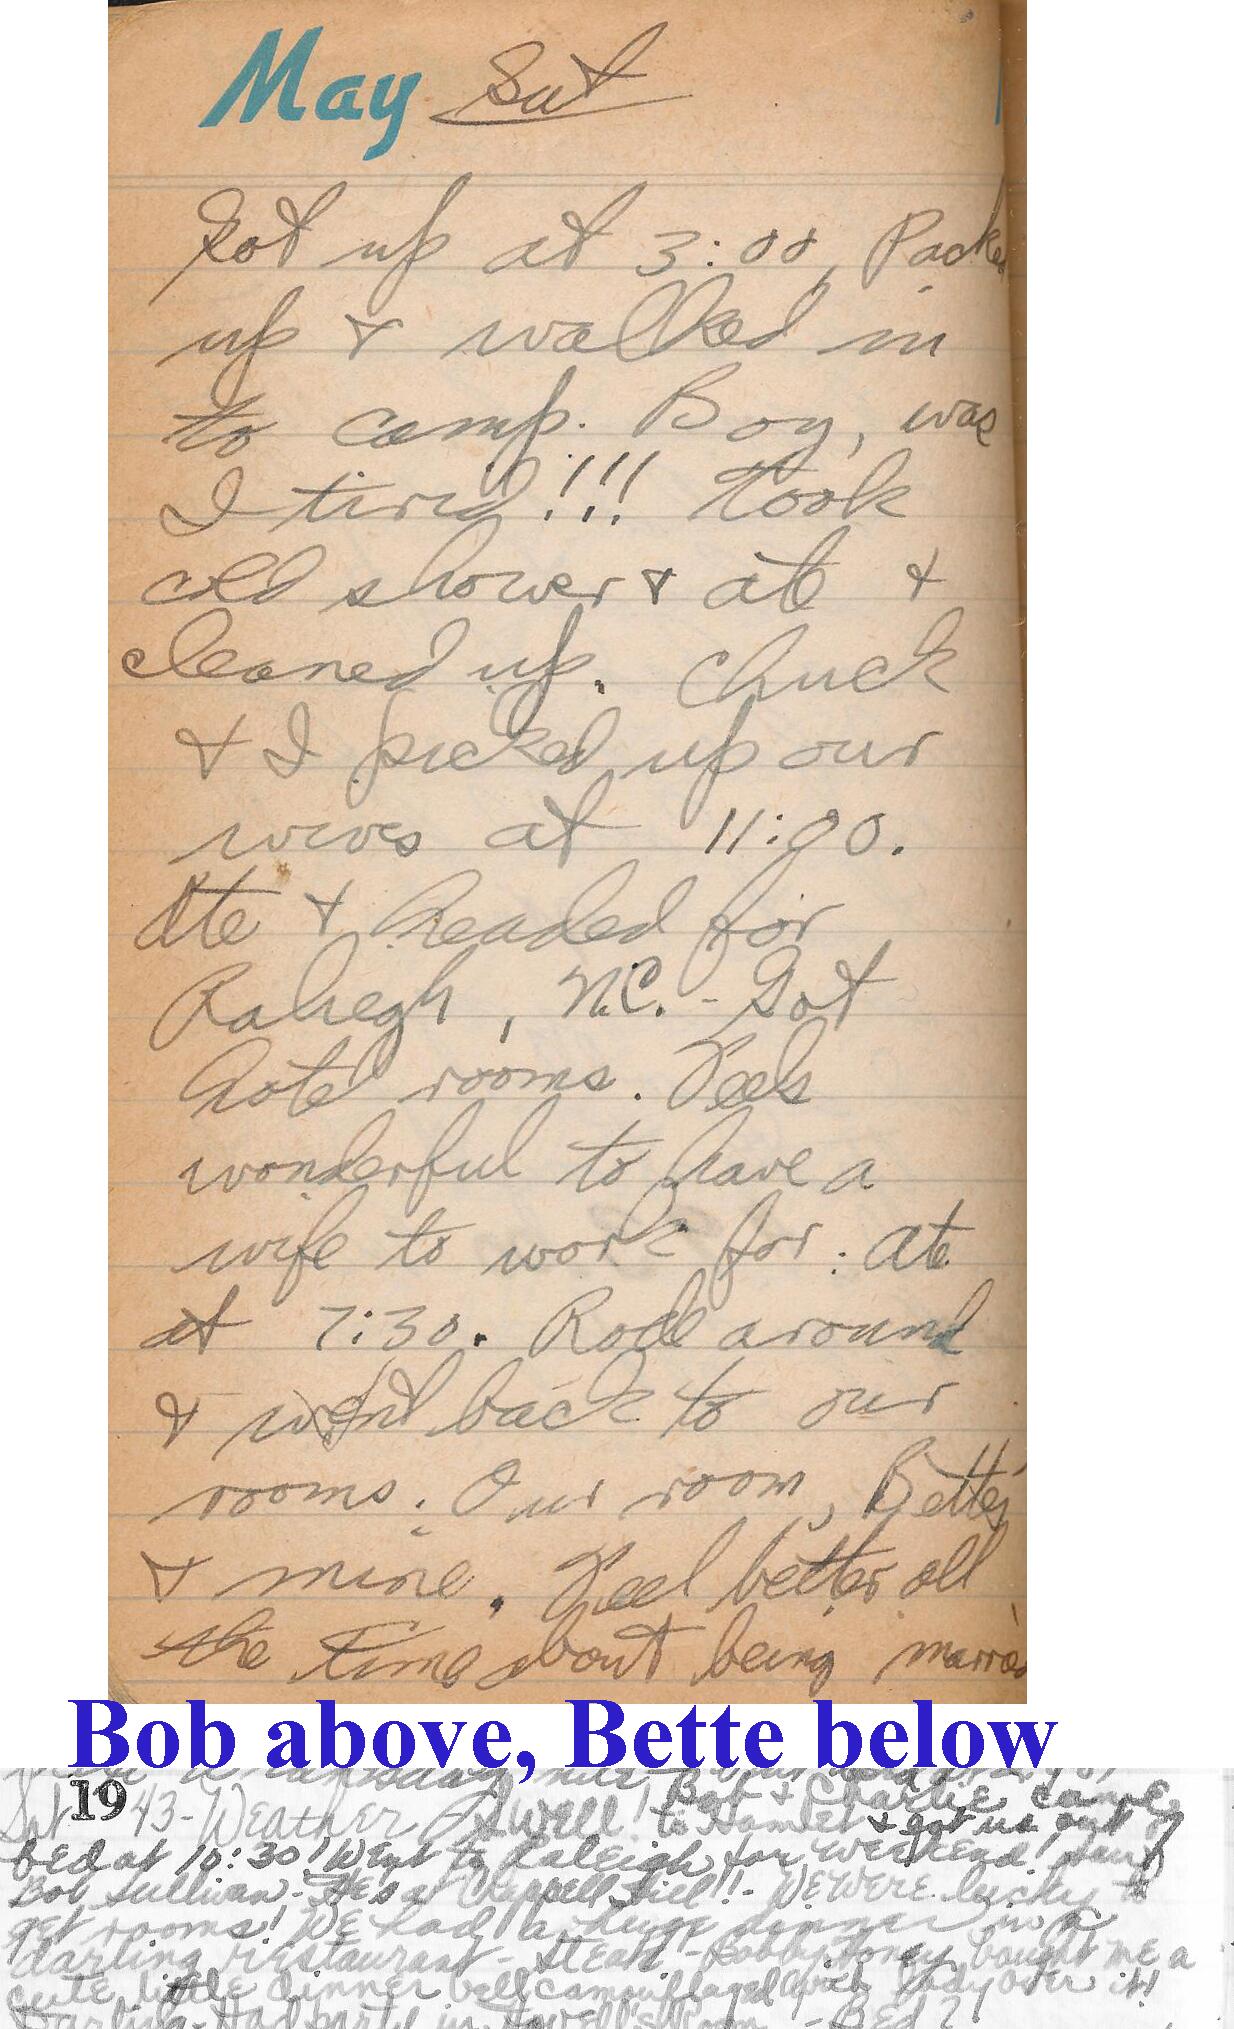 May Sat
Got up at 3:00, Packed
up & walked in
to camp. Boy, was
I tired!!! Took
cold shower & ate &
cleaned up. Chuck
& I picked up our
wives at 11:00.
Ate & headed for
Raliegh, N.C. - Got
hotel rooms. Feels
wonderful to have a
wife to work for. Ate
at 7:30. Rode around
& went back to our
rooms. Our room, Bette's
& mine. Feel better all
the time about being married
Bob above, Bette below
Sat 19 43 - Weather Swell! Bob & Charlie came
to Hamlet & got us out of
bed at 10:30! Went to Raleigh for weekend! Saw
Bob Sullivan - He's at Chappell Hill!! - We were lucky to
get rooms! We had a huge dinner in a
darling restaurant - Steak - Bobby Honey bought me a
cute little dinner bell camouflaged with lady over it!
Darling - Had party in Room - Bed?